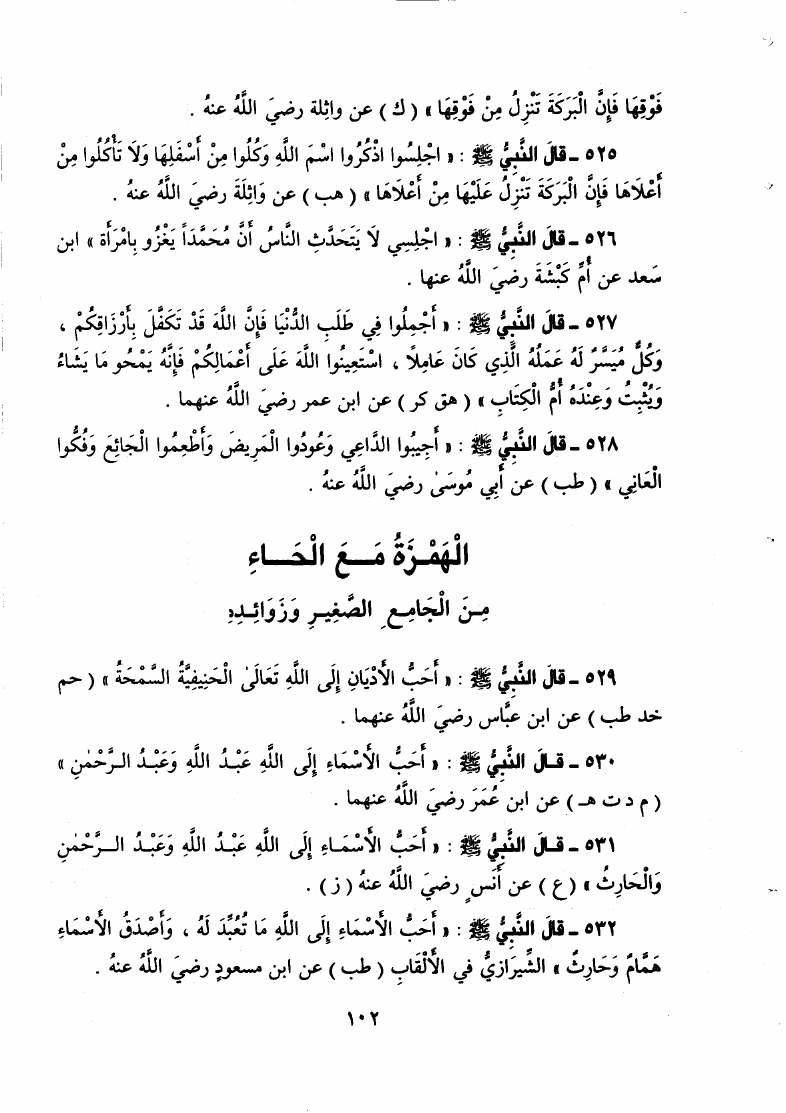 فَوْقِهَا فَإِنَّ الْبَرَكَةَ تَنْزِلُ مِنْ فَوْقِهَا » ( ك ) عن واثِلة رضيَ اللَّهُ عنهُ .
٥٢٥ ـ قالَ النَّبِيُّ ﷺ : « اجْلِسُوا اذْكُرُوا اسْمَ اللَّهِ وَكُلُوا مِنْ أَسْفَلِهَا وَلاَ تَأْكُلُوا مِنْ
أَعْلَاهَا فَإِنَّ الْبَرَكَةَ تَنْزِلُ عَلَيْهَا مِنْ أَعْلَاهَا » ( هب ) عن وَاثِلَةَ رضيَ اللَّهُ عنهُ .
٥٢٦ ـ قالَ النَّبِيُّ ﷺ : « اجْلِسِي لاَ يَتَحَدَّثِ النَّاسُ أَنَّ مُحَمَّداً يَغْزُو بِامْرَأَة » ابن
سَعد عن أُمِّ كَبْشَةَ رضيَ اللَّهُ عنها .
٥٢٧ ـ قالَ النَّبِيُّ ﷺ : « أَجْمِلُوا فِي طَلَبِ الدُّنْيَا فَإِنَّ اللَّهَ قَدْ تَكَفَّلَ بِأَرْزَاقِكُمْ ،
وَكُلٌّ مُيَسَّرٌ لَهُ عَمَلُهُ الَّذِي كَانَ عَامِلاً ، اسْتَعِينُوا اللَّهَ عَلَى أَعْمَالِكُمْ فَإِنَّهُ يَمْحُو مَا يَشَاءُ
وَيُثْبِتُ وَعِنْدَهُ أُمُّ الْكِتَابِ » ( هق كر ) عن ابن عمر رضيَ اللَّهُ عنهما .
٥٢٨ ـ قالَ النَّبِيُّ ﷺ : « أَجِيبُوا الدَّاعِي وَعُودُوا الْمَرِيضَ وَأَطْعِمُوا الْجَائِعَ وَفُكُّوا
الْعَانِي » ( طب ) عن أَبِي مُوسَىٰ رضيَ اللَّهُ عنهُ .
الْهَمْزَةُ مَـــعَ الْحَـــاءِ
مِـنَ الْجَامِعِ الصَّغِيـرِ وَزَوَائِـدِهِ
٥٢٩ ـ قالَ النَّبِيُّ ﷺ : « أَحَبُّ الأَدْيَانِ إِلَى اللَّهِ تَعَالَىٰ الْحَنِيفِيَّةُ السَّمْحَةُ » ( حم
خد طب ) عن ابن عبَّاس رضيَ اللَّهُ عنهما .
٥٣٠ ـ قـالَ النَّبِيُّ ﷺ : « أَحَبُّ الأَسْمَاءِ إِلَى اللَّهِ عَبْـدُ اللَّهِ وَعَبْـدُ الرَّحْمٰنِ »
( م د ت هـ ) عن ابن عُمَرَ رضيَ اللَّهُ عنهما .
٥٣١ ـ قـالَ النَّبِيُّ ﷺ : « أَحَبُّ الأَسْمَـاءِ إِلَى اللَّهِ عَبْـدُ اللَّهِ وَعَبْـدُ الـرَّحْمٰنِ
وَالْحَارِثُ » ( ع ) عن أَنَسٍ رضيَ اللَّهُ عنهُ ( ز ) .
٥٣٢ ـ قالَ النَّبِيُّ ﷺ : « أَحَبُّ الأَسْمَاءِ إِلَى اللَّهِ مَا تُعُبِّدَ لَهُ ، وَأَصْدَقُ الأَسْمَاءِ
هَمَّامٌ وَحَارِثٌ » الشِّيرَازِيُّ في الأَلْقَابِ ( طب ) عن ابن مسعودٍ رضيَ اللَّهُ عنهُ .
١٠٢